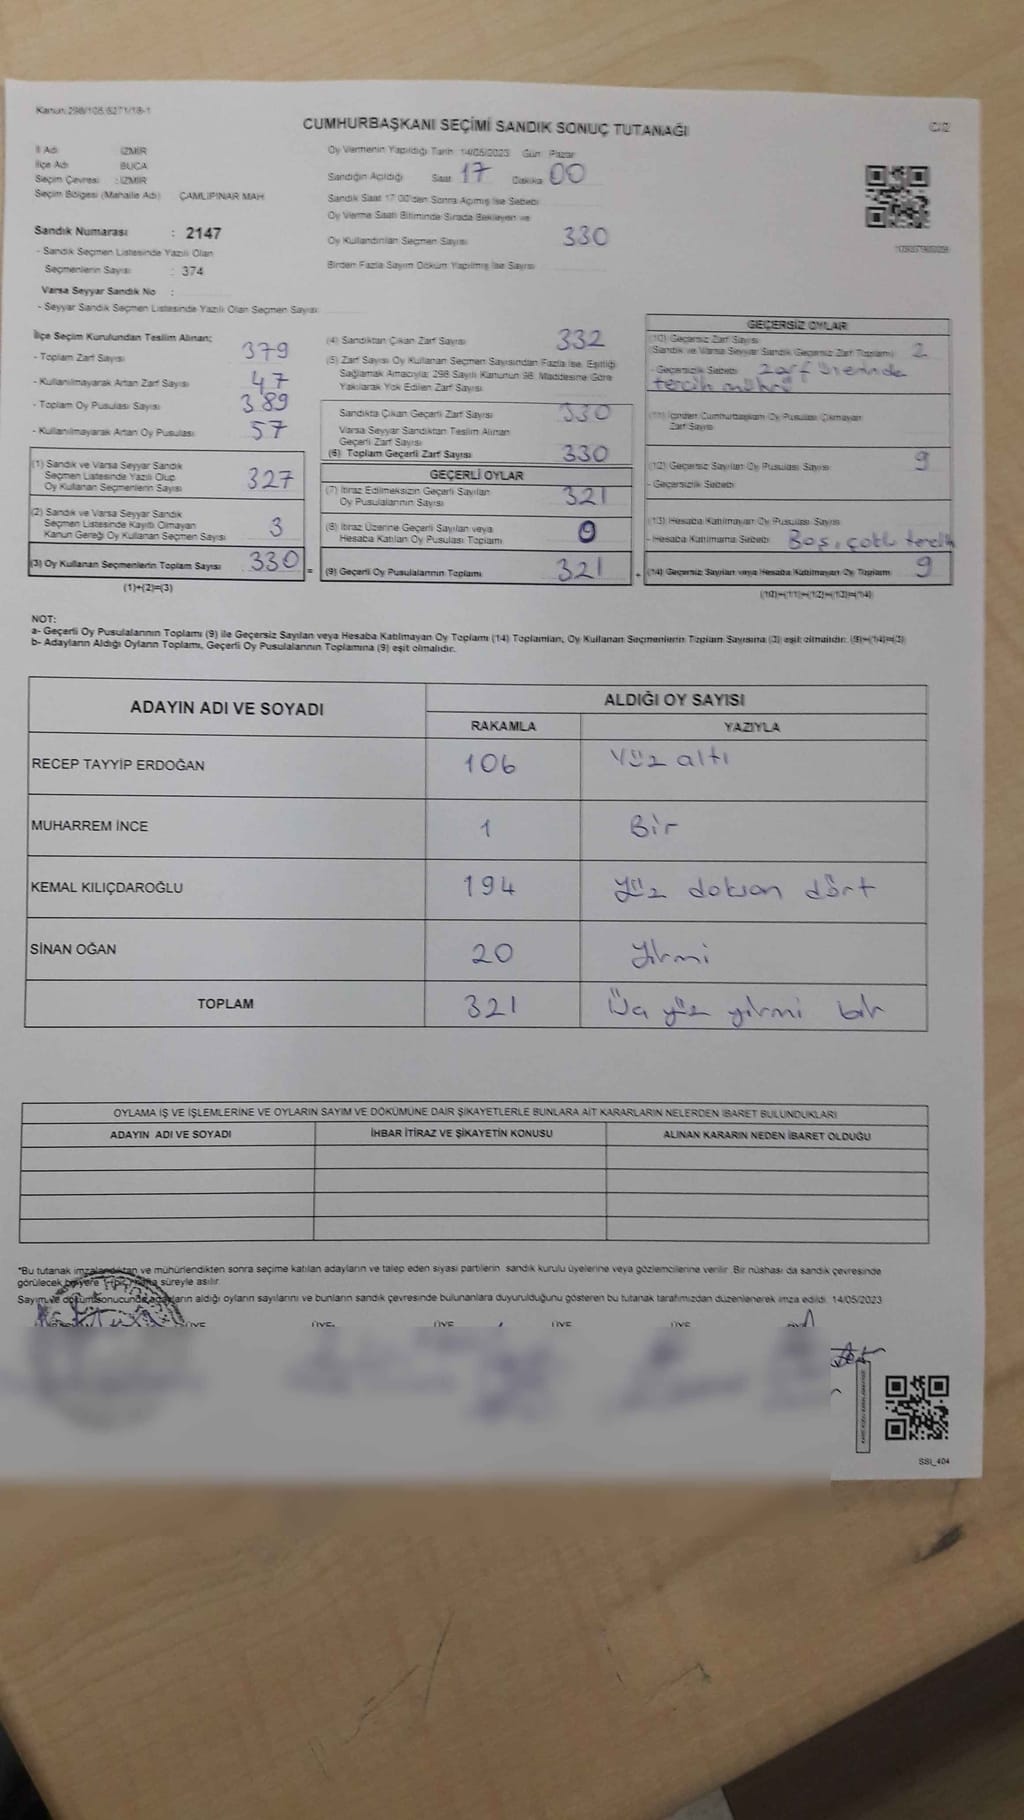 Kanun:298/105,6271/18-1
CUMHURBAŞKANI SEÇİMİ SANDIK SONUÇ TUTANAĞI
İl Adı : İZMİR
İlçe Adı : BUCA
Seçim Çevresi : İZMİR
Seçim Bölgesi (Mahalle Adı) : ÇAMLIPINAR MAH
Sandık Numarası : 2147
- Sandık Seçmen Listesinde Yazılı Olan
Seçmenlerin Sayısı : 374
Varsa Seyyar Sandık No :
- Seyyar Sandık Seçmen Listesinde Yazılı Olan Seçmen Sayısı:
Oy Vermenin Yapıldığı Tarih: 14/05/2023 Gün: Pazar
Sandığın Açıldığı Saat 17 Dakika 00
Sandık Saat 17:00'den Sonra Açılmış İse Sebebi
Oy Verme Saati Bitiminde Sırada Bekleyen ve
Oy Kullandırılan Seçmen Sayısı 330
Birden Fazla Sayım Döküm Yapılmış İse Sayısı
İlçe Seçim Kurulundan Teslim Alınan;
- Toplam Zarf Sayısı 379
- Kullanılmayarak Artan Zarf Sayısı 47
- Toplam Oy Pusulası Sayısı 389
- Kullanılmayarak Artan Oy Pusulası 57
(1) Sandık ve Varsa Seyyar Sandık
Seçmen Listesinde Yazılı Olup
Oy Kullanan Seçmenlerin Sayısı 327
(2) Sandık ve Varsa Seyyar Sandık
Seçmen Listesinde Kayıtlı Olmayan
Kanun Gereği Oy Kullanan Seçmen Sayısı 3
(3) Oy Kullanan Seçmenlerin Toplam Sayısı 330 =
(1)+(2)=(3)
(4) Sandıktan Çıkan Zarf Sayısı 332
(5) Zarf Sayısı Oy Kullanan Seçmen Sayısından Fazla İse, Eşitliği
Sağlamak Amacıyla; 298 Sayılı Kanunun 98. Maddesine Göre
Yakılarak Yok Edilen Zarf Sayısı
Sandıkta Çıkan Geçerli Zarf Sayısı 330
Varsa Seyyar Sandıktan Teslim Alınan
Geçerli Zarf Sayısı
(6) Toplam Geçerli Zarf Sayısı 330
GEÇERLİ OYLAR
(7) İtiraz Edilmeksizin Geçerli Sayılan
Oy Pusulalarının Sayısı 321
(8) İtiraz Üzerine Geçerli Sayılan veya
Hesaba Katılan Oy Pusulası Toplamı 0
(9) Geçerli Oy Pusulalarının Toplamı 321 +
GEÇERSİZ OYLAR
(10) Geçersiz Zarf Sayısı
(Sandık ve Varsa Seyyar Sandık Geçersiz Zarf Toplamı) 2
- Geçersizlik Sebebi zarf üzerinde
tercih mührü
(11) İçinden Cumhurbaşkanı Oy Pusulası Çıkmayan
Zarf Sayısı
(12) Geçersiz Sayılan Oy Pusulası Sayısı 9
- Geçersizlik Sebebi
(13) Hesaba Katılmayan Oy Pusulası Sayısı
- Hesaba Katılmama Sebebi Boş, çoklu tercih
(14) Geçersiz Sayılan veya Hesaba Katılmayan Oy Toplamı 9
(10)+(11)+(12)+(13)=(14)
NOT:
a- Geçerli Oy Pusulalarının Toplamı (9) ile Geçersiz Sayılan veya Hesaba Katılmayan Oy Toplamı (14) Toplamları, Oy Kullanan Seçmenlerin Toplam Sayısına (3) eşit olmalıdır. (9)+(14)=(3)
b- Adayların Aldığı Oyların Toplamı, Geçerli Oy Pusulalarının Toplamına (9) eşit olmalıdır.
ADAYIN ADI VE SOYADI ALDIĞI OY SAYISI
RAKAMLA YAZIYLA
RECEP TAYYİP ERDOĞAN 106 Yüz altı
MUHARREM İNCE 1 Bir
KEMAL KILIÇDAROĞLU 194 Yüz doksan dört
SİNAN OĞAN 20 Yirmi
TOPLAM 321 Üç yüz yirmi bir
OYLAMA İŞ VE İŞLEMLERİNE VE OYLARIN SAYIM VE DÖKÜMÜNE DAİR ŞİKAYETLERLE BUNLARA AİT KARARLARIN NELERDEN İBARET BULUNDUKLARI
ADAYIN ADI VE SOYADI İHBAR İTİRAZ VE ŞİKAYETİN KONUSU ALINAN KARARIN NEDEN İBARET OLDUĞU
*Bu tutanak imzalandıktan ve mühürlendikten sonra seçime katılan adayların ve talep eden siyasi partilerin sandık kurulu üyelerine veya gözlemcilerine verilir. Bir nüshası da sandık çevresinde
görülecek bir yere 1 (bir) hafta süreyle asılır.
Sayım ve dökümü sonucunda adayların aldığı oyların sayılarını ve bunların sandık çevresinde bulunanlara duyurulduğunu gösteren bu tutanak tarafımızdan düzenlenerek imza edildi. 14/05/2023
ÜYE ÜYE ÜYE ÜYE ÜYE
SSI_404